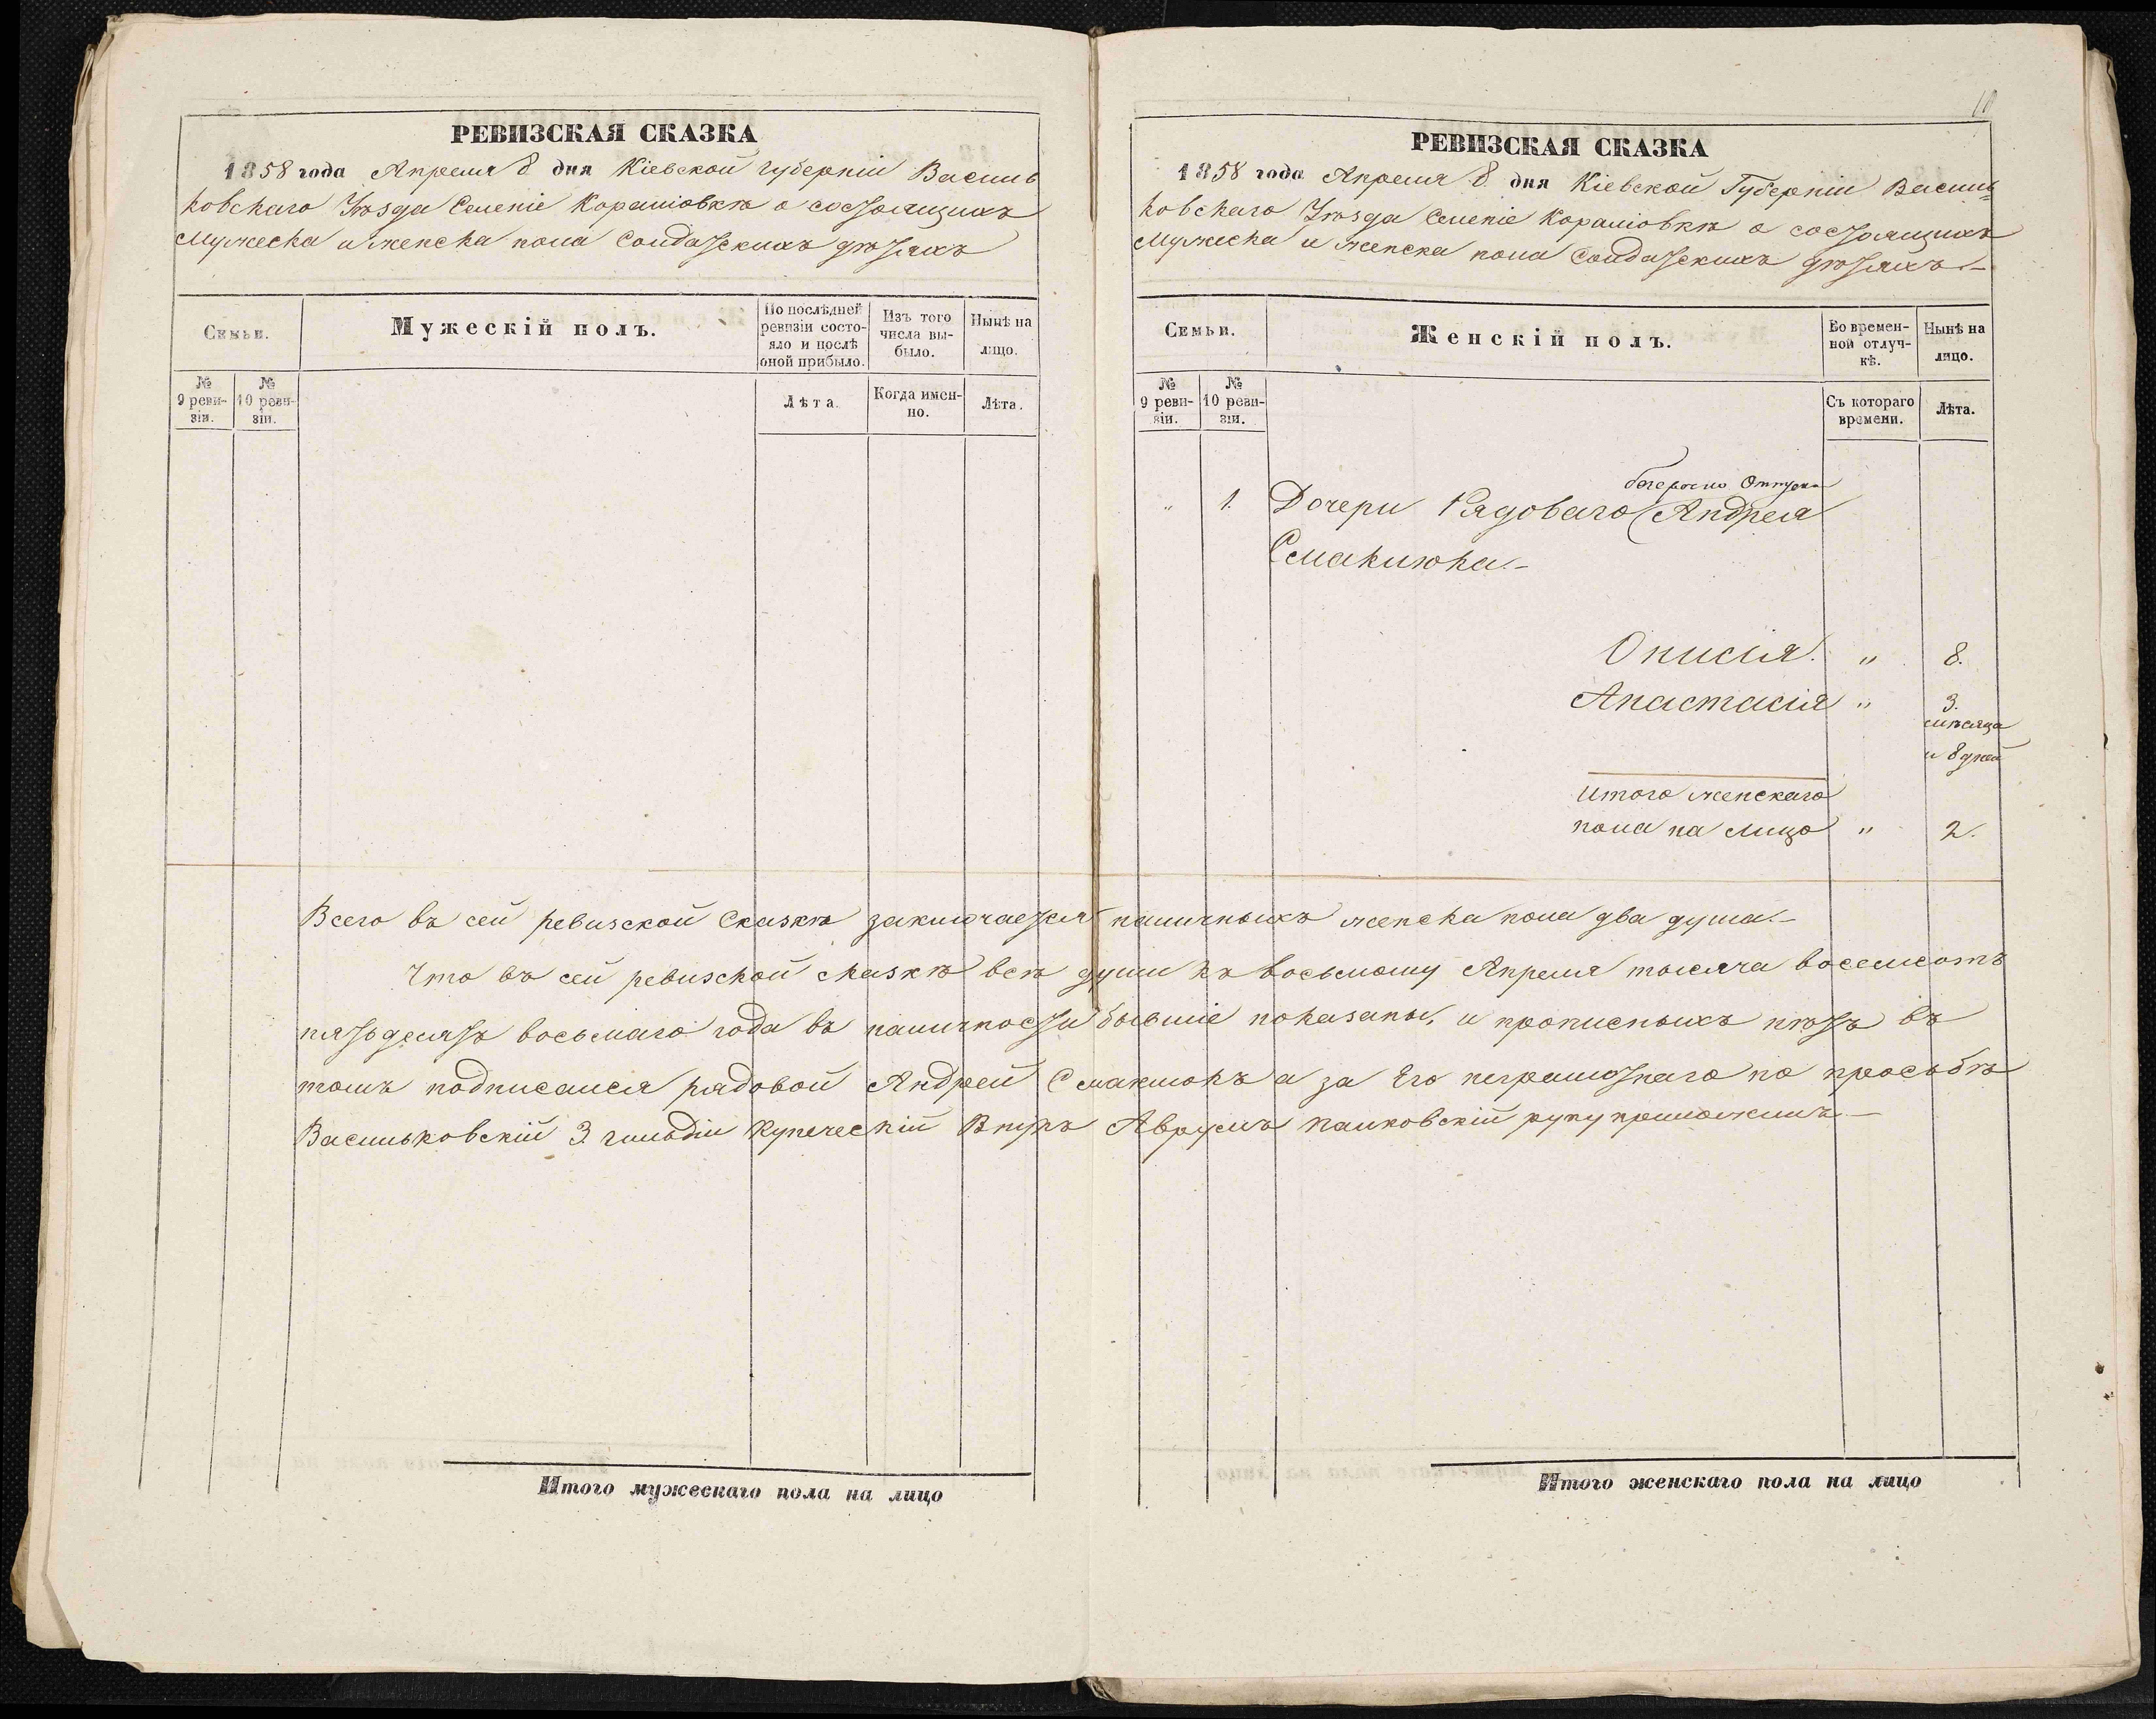 РЕВИЗСКАЯ СКАЗКА
1858 года Апреля 8 дня Кіевской губерніи Василь
ковскаго Уѣзда Селеніе Кораліовкѣ о состоящихъ
мужеска и женска пола Солдатскихъ дѣтяхъ
Семьи.
Мужескій полъ.
По послѣдней ревизіи состо-
яло и послѣ оной прибыло.
Изъ того числа вы-
было.
Нынѣ на лицо.
№ 9 реви-
зіи.
№ 10 реви-
зіи.
Лѣта.
Когда имен-
но.
Лѣта.
Итого мужескаго пола на лицо
10
РЕВИЗСКАЯ СКАЗКА
1858 года Апреля 8 дня Кіевской Губерніи Василь=
ковскаго Уѣзда Селеніе Кораліовкѣ о состоящихъ
мужеска и женска пола Солдатскихъ дѣтяхъ.–
Семьи.
Женскій полъ.
Во времен-
ной отлуч-
кѣ.
Нынѣ на лицо.
№ 9 реви-
зіи.
№ 10 реви-
зіи.
Съ котораго времени.
Лѣта.
" 1. Дочери Рядоваго Андрея
Смаклюка.–
Описія. " 8.
Анастасія " 3.
мѣсяца
и 8 дней
Итого женскаго
пола на лицо " 2.
Всего въ сей ревизской Сказкѣ заключается наличныхъ женска пола два душа.–
Что въ сей ревизской сказкѣ всѣ души къ восьмому Апреля тысяча восемсотъ
пятьдесятъ восьмаго года въ наличности бывшіе показаны, и прописныхъ нѣтъ въ
томъ подписался рядовой Андрей Смаклюкъ а за Его неграмотнаго по просьбѣ
Васильковскій 3. гильдіи Купеческій Внукъ Аврумъ Палковскій руку приложилъ.–
Итого женскаго пола на лицо